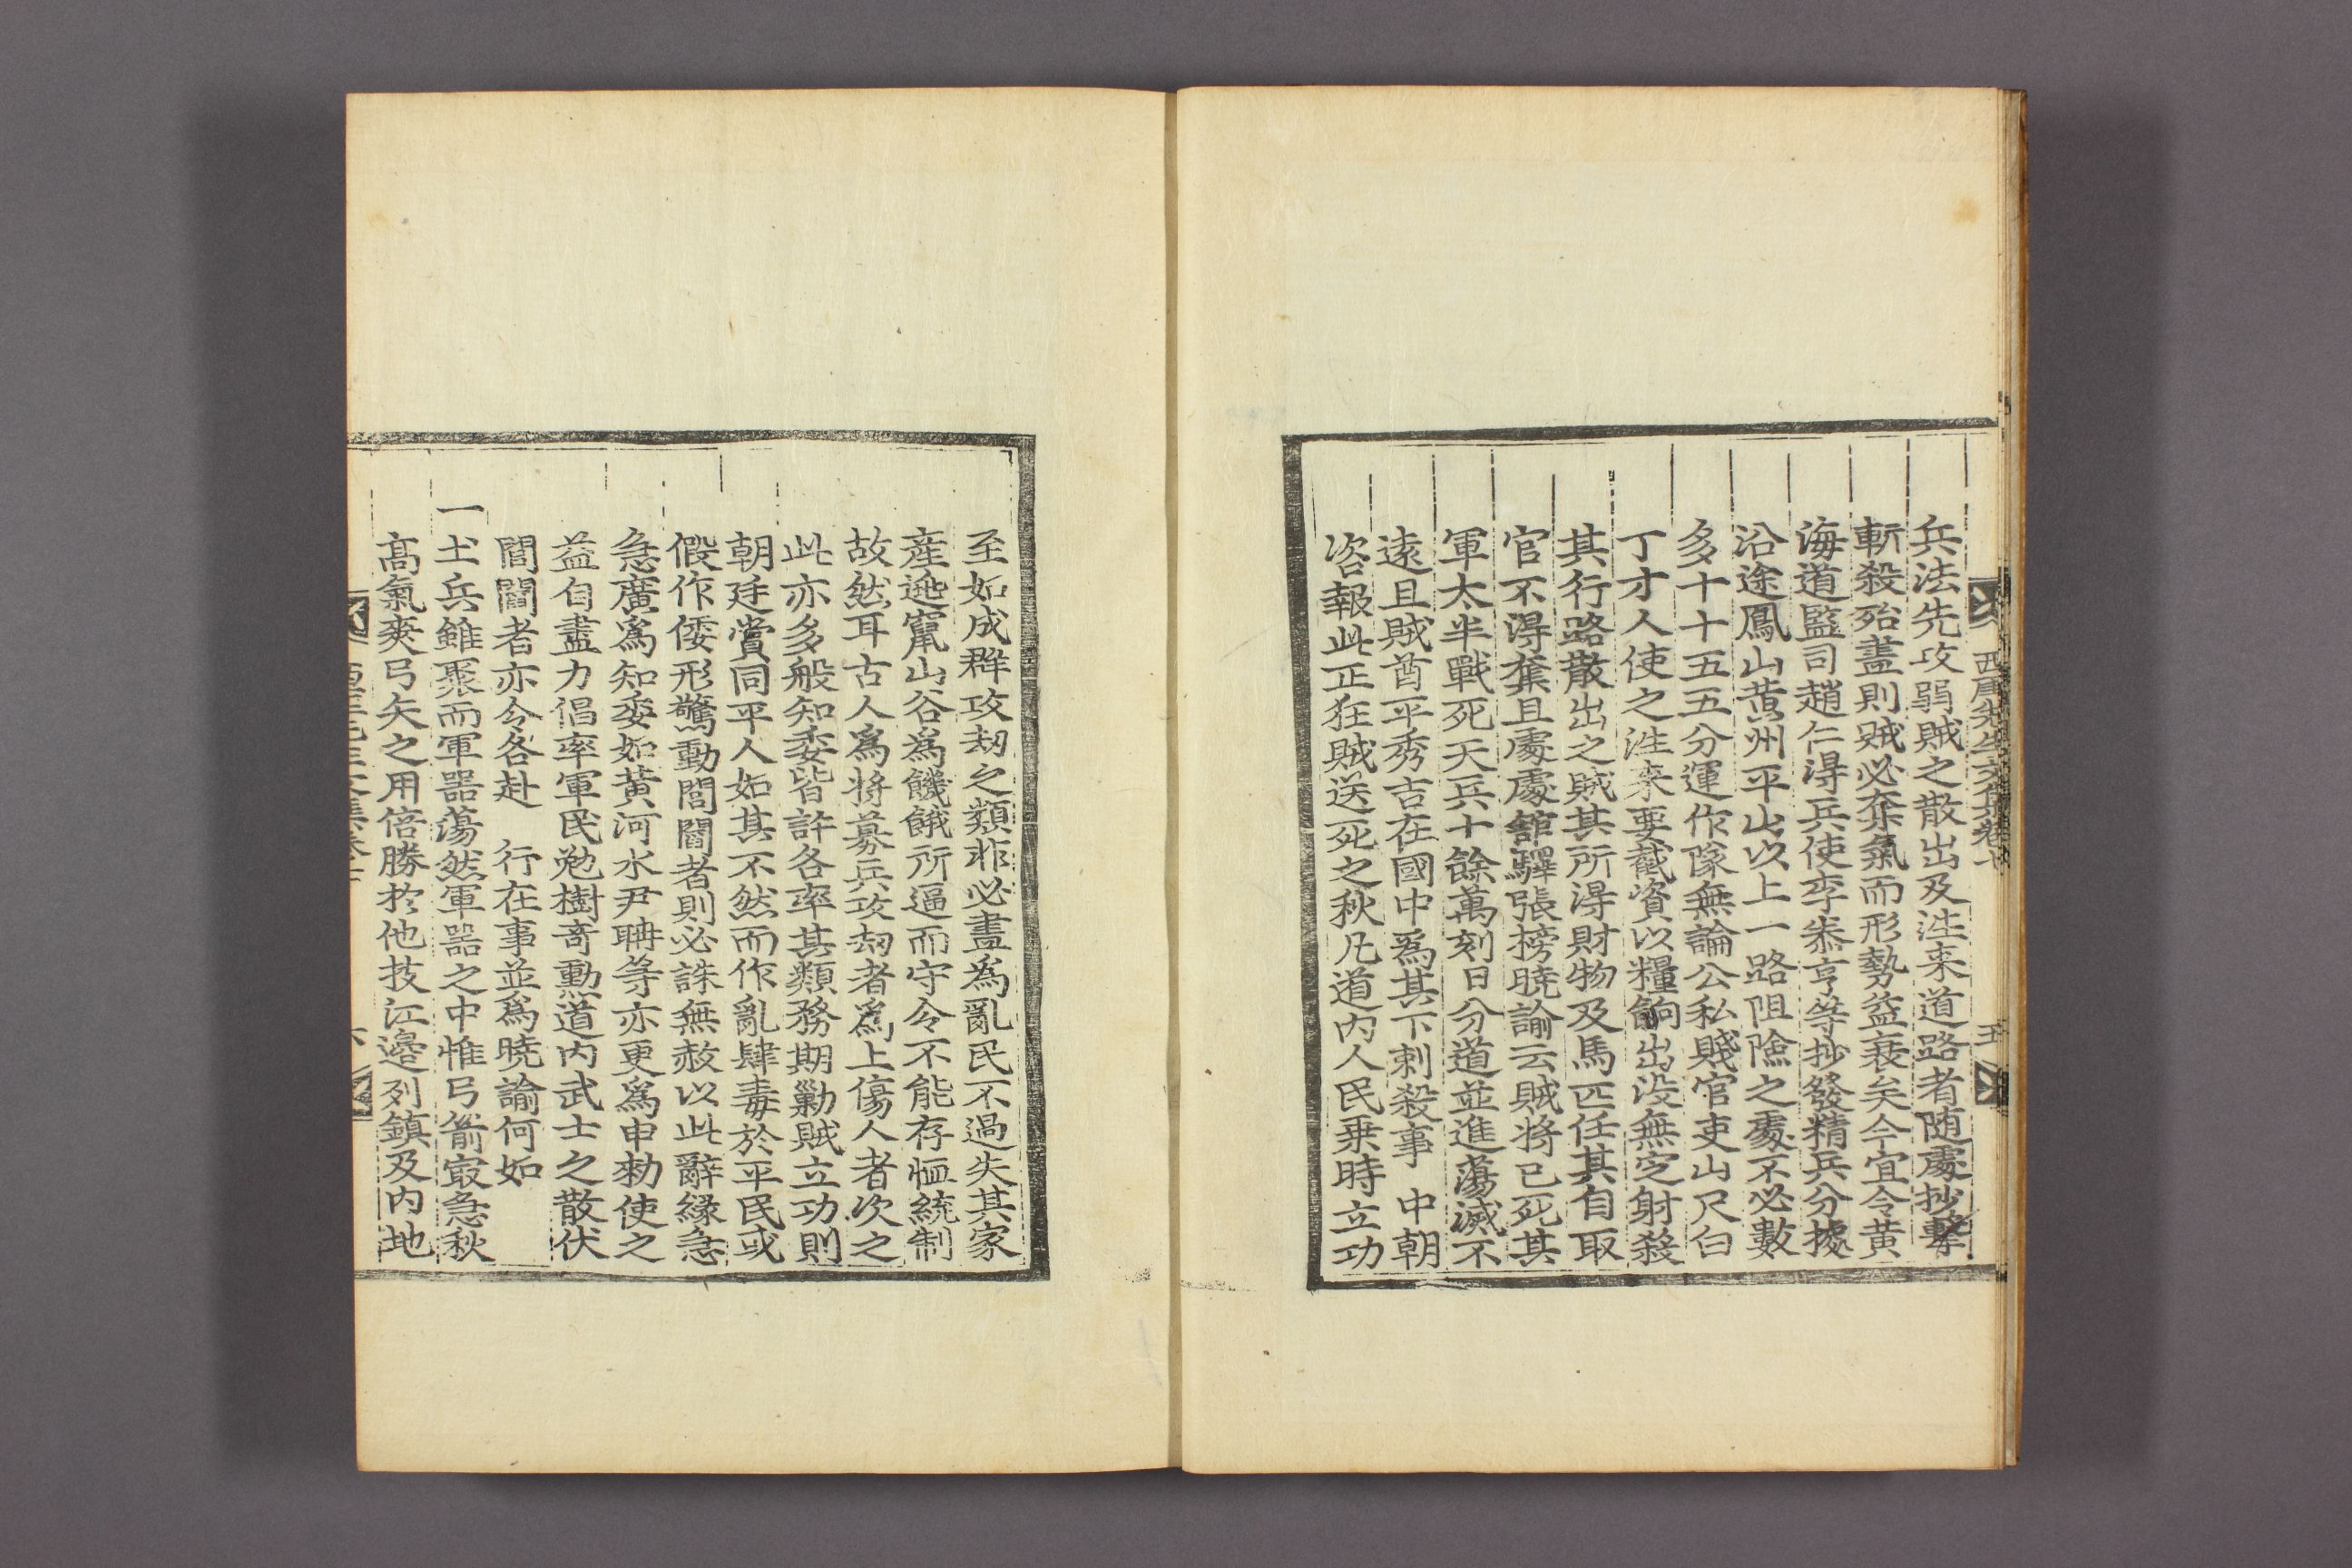 西厓先生文集卷七 五
兵法先攻弱賊之散出及往来道路者随處抄擊
斬殺殆盡則賊必奪氣而形勢益衰矣今宜令黄
海道監司趙仁得兵使李㮒亨等抄發精兵分據
沿途鳳山黄州平山以上一路阻險之處不必數
多十十五五分運作隊無論公私賤官吏山尺白
丁才人使之往来要截資以糧餉出没無定射殺
其行路散出之賊其所得財物及馬匹任其自取
官不得奪且處處舘驛張榜曉諭云賊將已死其
軍太半戰死天兵十餘萬刻日分道並進蕩滅不
遠且賊酋平秀吉在國中爲其下刺殺事 中朝
咨報此正狂賊送死之秋凡道内人民乗時立功
至如成群攻刼之類非必盡爲亂民不過失其家
産逃竄山谷爲饑餓所逼而守令不能存恤統制
故然耳古人爲將募兵攻刼者爲上傷人者次之
此亦多般知委皆許各率其類務期勦賊立功則
朝廷賞同平人如其不然而作亂肆毒於平民或
假作倭形驚動閭閻者則必誅無赦以此辭縁急
急廣爲知委如黄河水尹聃等亦更爲申勑使之
益自盡力倡率軍民勉樹奇勳道内武士之散伏
閭閻者亦令各赴 行在事並爲曉諭何如
一土兵雖聚而軍器蕩然軍器之中惟弓箭㝡急秋
髙氣爽弓矢之用倍勝於他技江邊列鎮及内地